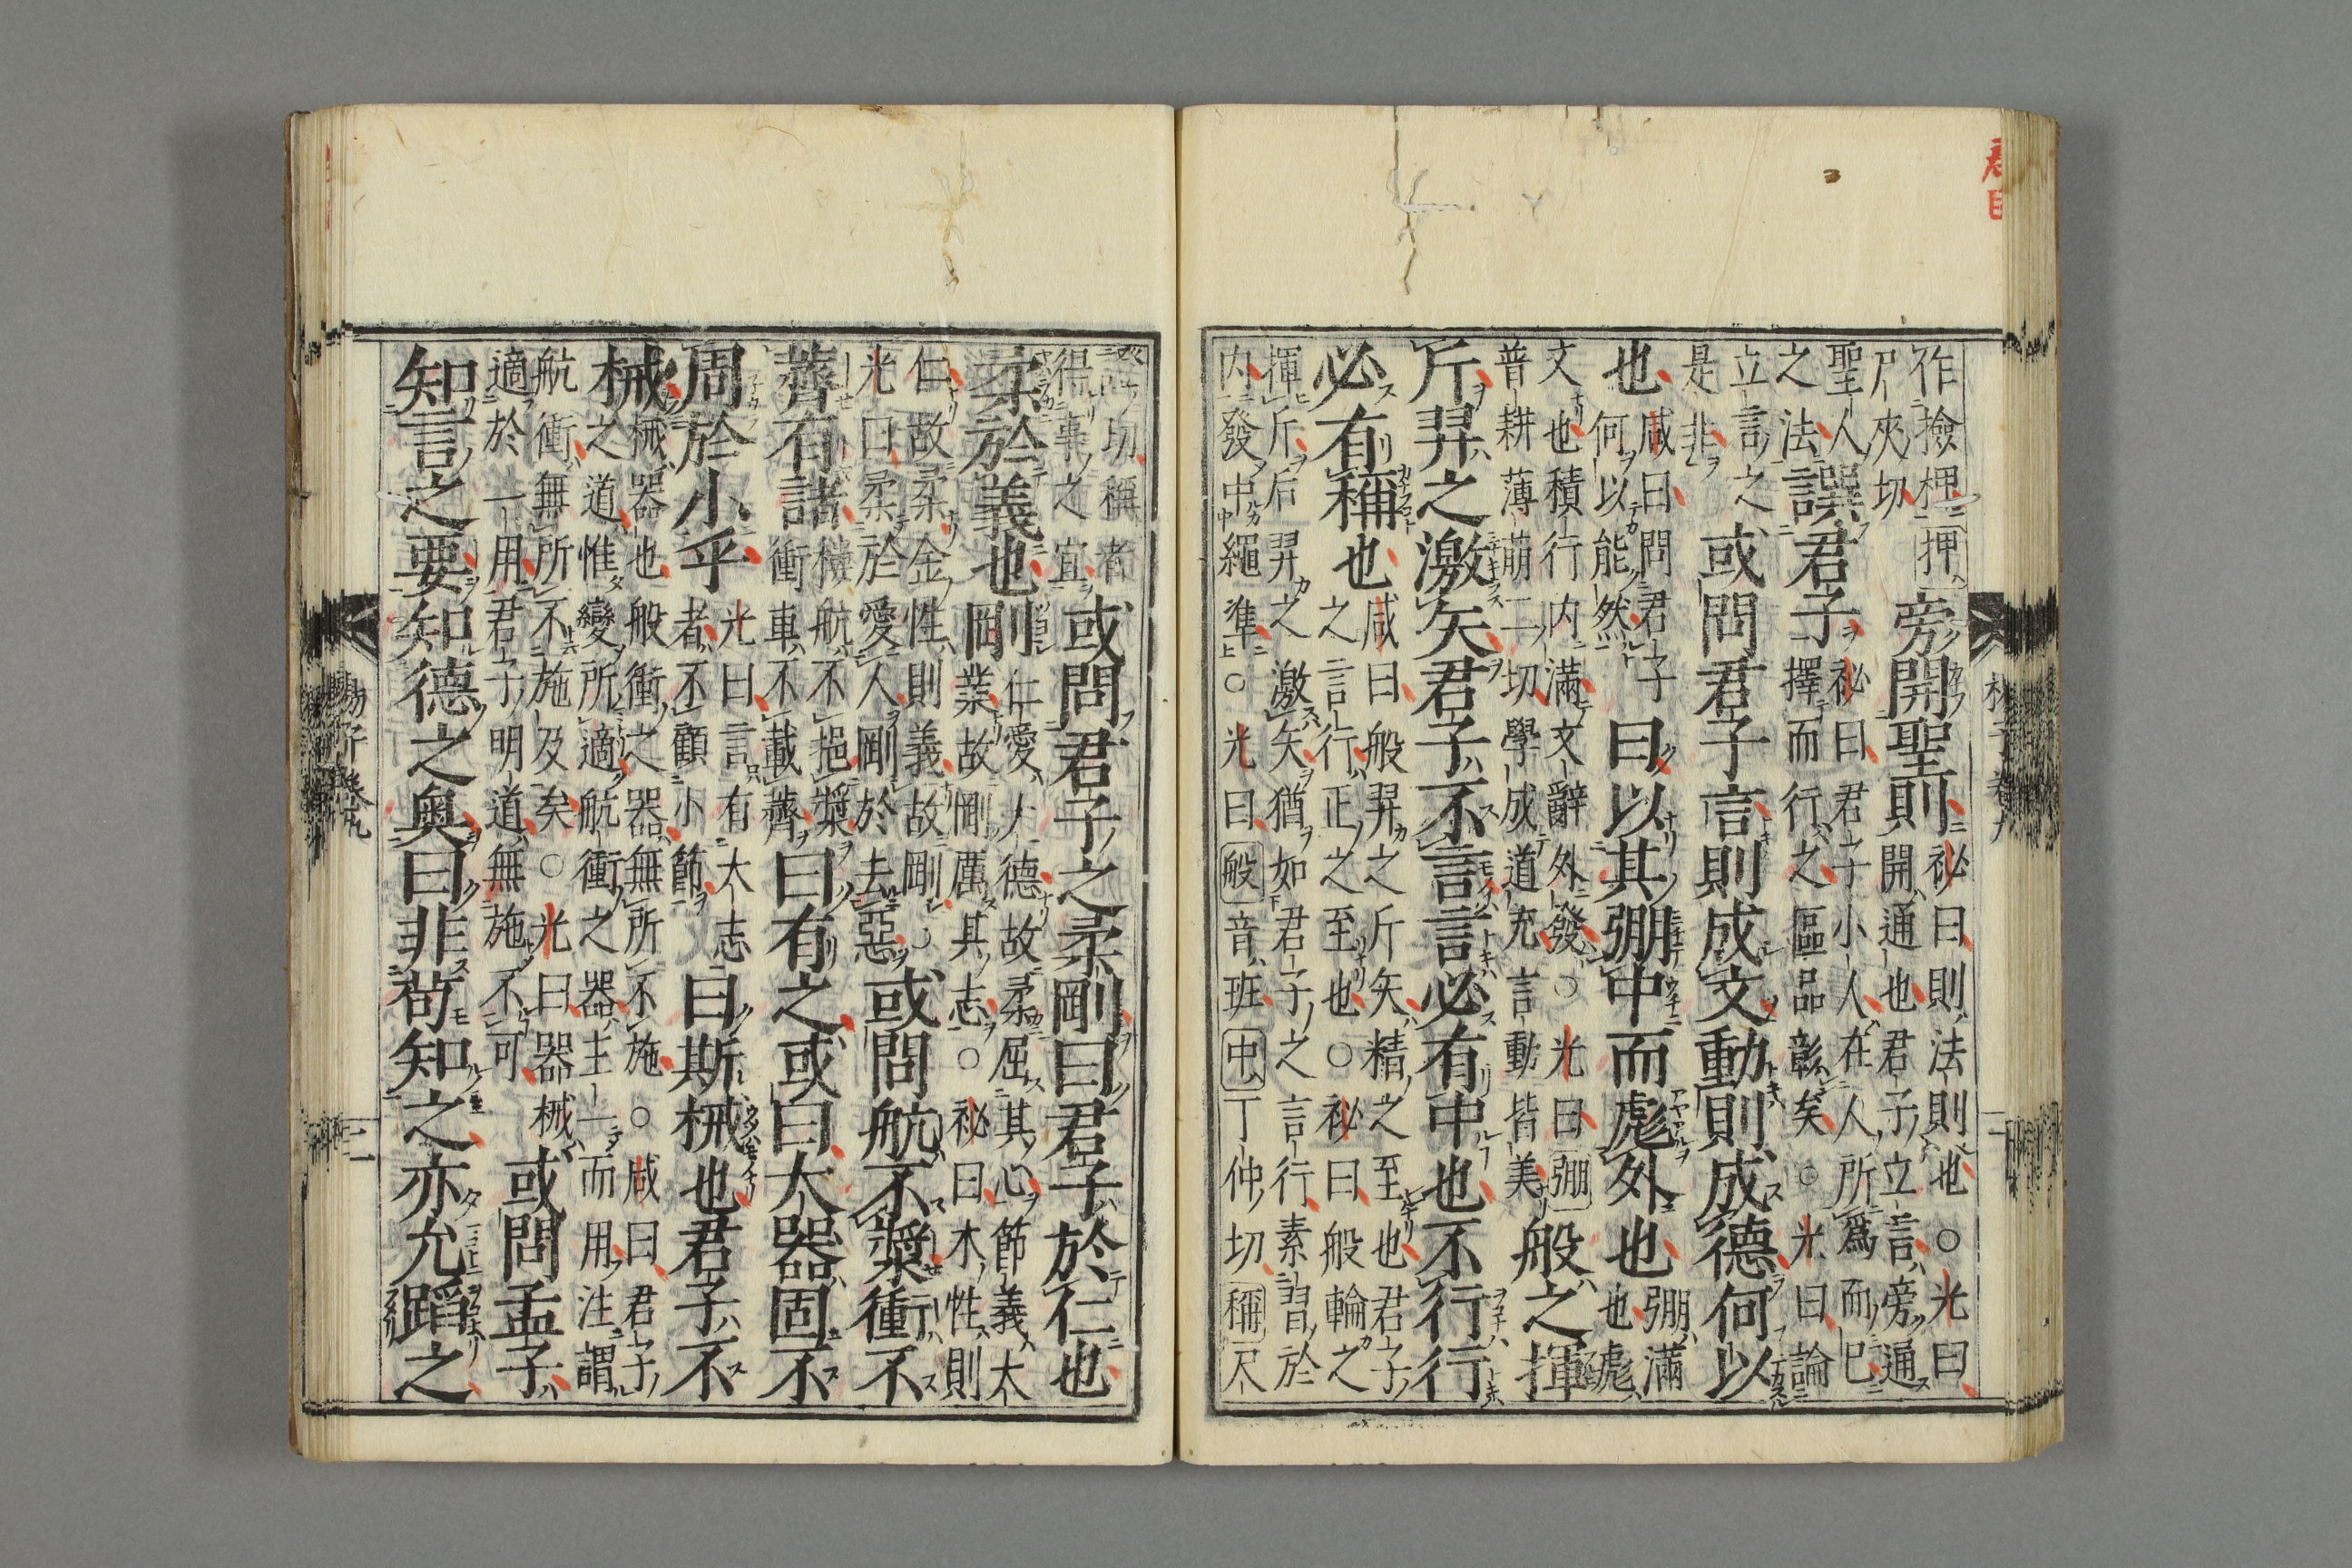 作撿柙押
尸夾切
旁開聖則
祕曰則法則也○光曰
開通也君子立言旁通
聖人
之法
譔君子
祕曰君子小人在人所爲而已
擇而行之區品彰矣○光曰論
立言之
是非
或問君子言則成文動則成德何以
也
咸曰問君子
何以能然
曰以其弸中而彪外也
弸滿
也彪
文也積行内滿文辭外發○光曰弸
普耕薄萠二切學成道充言動皆美
般之揮
斤羿之激矢君子不言言必有中也不行行
必有稱也
咸曰般羿之斤矢精之至也君子
之言行正之至也○祕曰般輪之
揮斤后羿之激矢猶如君子之言行素習於
内發中繩準○光曰般音班中丁仲切稱尺
證切稱者
得事之宜
或問君子之柔剛曰君子於仁也
柔於義也剛
仁愛大德故柔屈其心節義大
業故剛厲其志○祕曰木性則
仁故柔金性則義故剛○
光曰柔於愛人剛於去惡
或問航不漿衝不
薺有諸
樓航不挹漿
衝車不載薺
曰有之或曰大器固不
周於小乎
光曰言有大志
者不顧小節
曰斯械也君子不
械
械器也般衝之器無所不施○咸曰君子
之道惟變所適航衝之器主一而用注謂
航衝無所不施及矣○光曰器械
適於一用君子明道無施不可
或問孟子
知言之要知德之奥曰非苟知之亦允蹈之